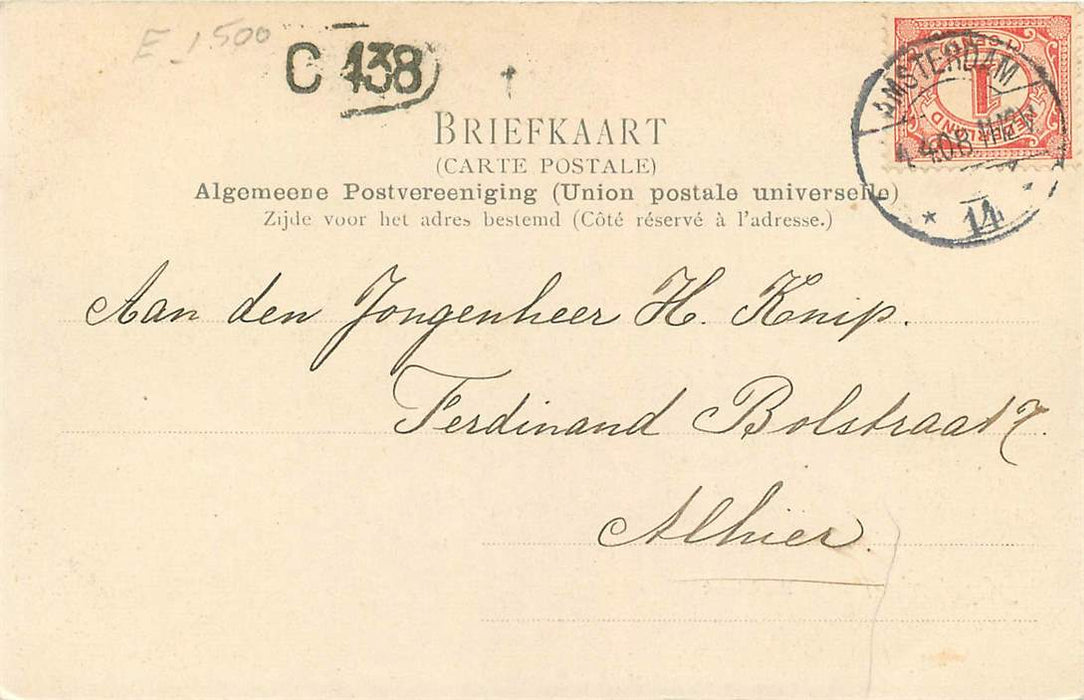 E 1500
C 438
BRIEFKAART
(CARTE POSTALE)
Algemeene Postvereeniging (Union postale universelle)
Zijde voor het adres bestemd (Côté réservé à l'adresse.)
AMSTERDAM
14
1
Aan den Jongenheer H. Knip.
Ferdinand Bolstraat 7.
Alhier.